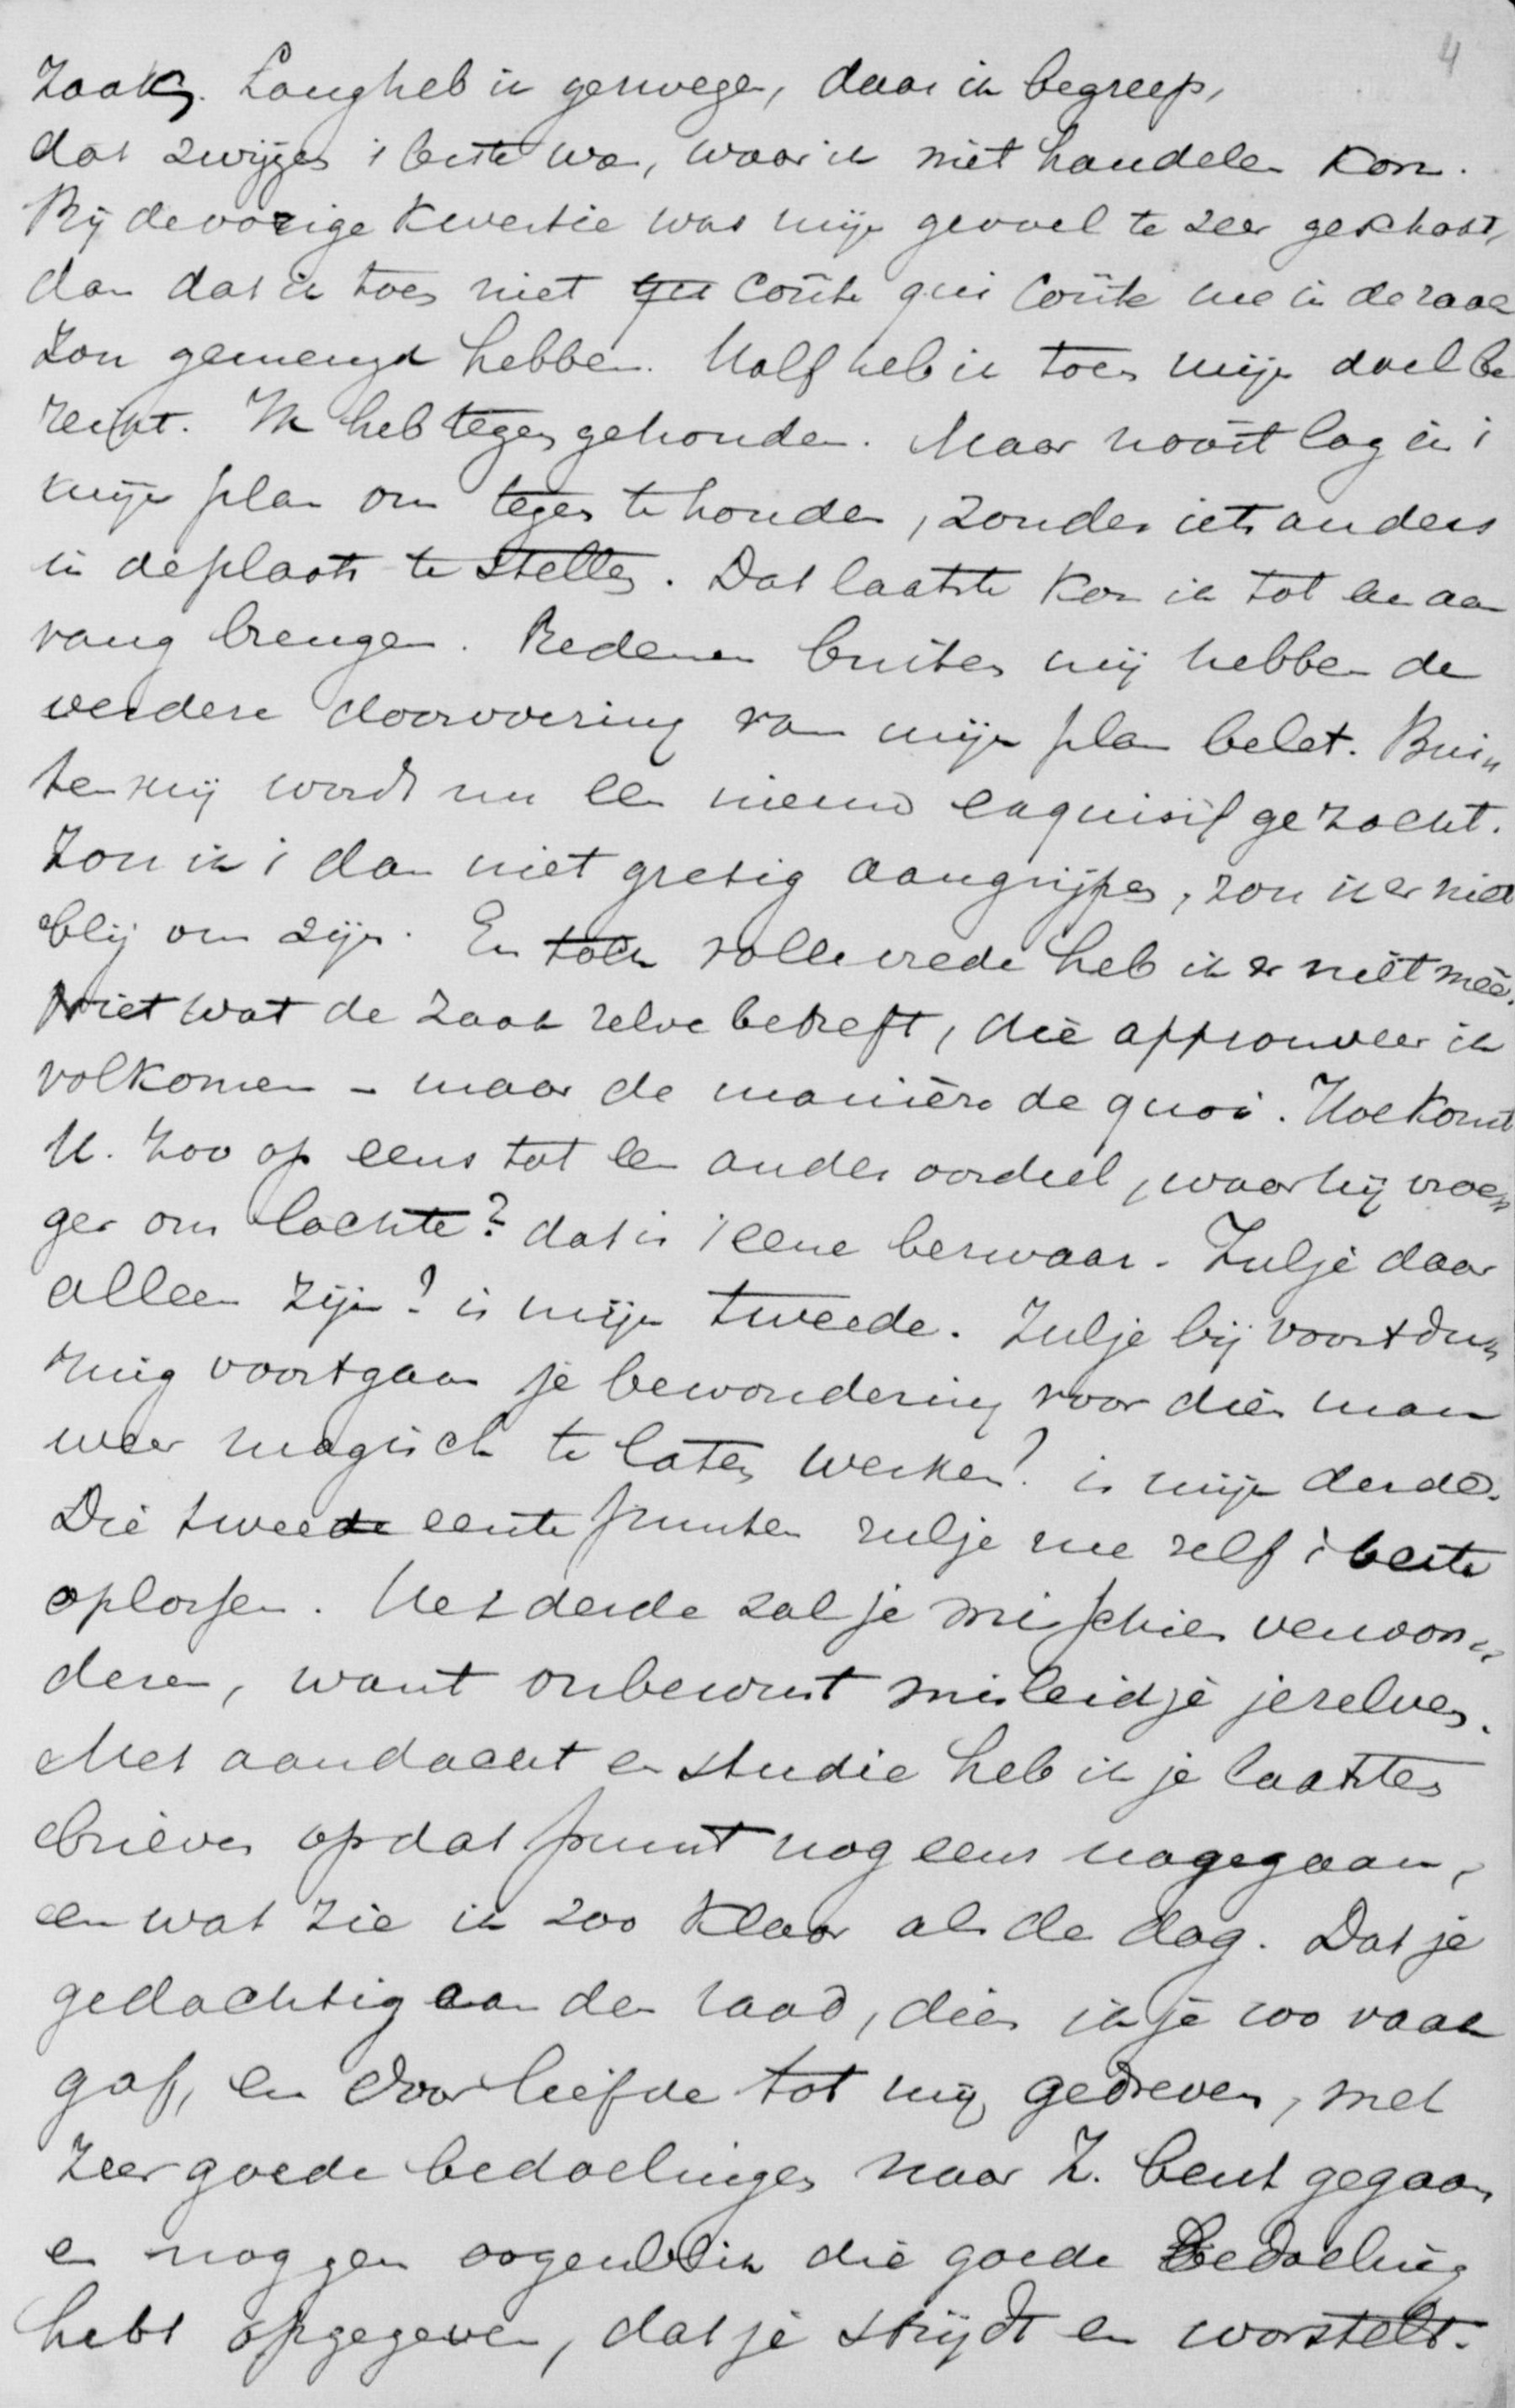 4
zaak. Lang heb ik gezwegen, daar ik begreep,
dat zwijgen 't beste was, waar ik niet handelen kon.
Bij de vorige kwestie was mijn gevoel te zeer geschokt,
dan dat ik toen niet coûte qui coûte me in de zaak
zou gemengd hebben. Half heb ik toen mijn doel be
reikt. Ik heb tegengehouden. Maar nooit lag èn i
mijn plan om tegen te houden, zonder iets anders
in de plaats te stellen. Dat laatste kon ik tot een aan
vang brengen. Redenen buiten mij hebben de
verdere doorvoering van mijn plan belet. Bui„
ten mij wordt nu een nieuw exquisit gezocht.
Zou ik 't dan niet gretig aangrijpen, zou ik er niet
blij om zijn. En toch volle vrede heb ik er niet mêe.
Niet wat de zaak zelve betreft, die approuveer ik
volkomen – maar de manière de quoi. Hoe komt
H. zoo op eens tot een ander oordeel, waar hij vroe„
ger om lachte? dat is 't eene bezwaar. Zul je daar
alleen zijn? is mijn tweede. Zul je bij voortdu„
ring voortgaan je bewondering voor dien man
weer magisch te laten werken? is mijn derde.
Die twee eerste punten zul je me zelf 't beste
oplossen. Het derde zal je misschien verwon„
deren, want onbewust misleid je jezelven.
Met aandacht en studie heb ik je laatste
brieven op dat punt nog eens nagegaan,
en wat zie ik zoo klaar als de dag. Dat je
gedachtig aan den raad, dien ik je zoo vaak
gaf, en door liefde tot mij gedreven, met
zeer goede bedoelingen naar Z. bent gegaan
en nog geen oogenblik die goede bedoeling
hebt opgegeven, dat je strijdt en worstelt.